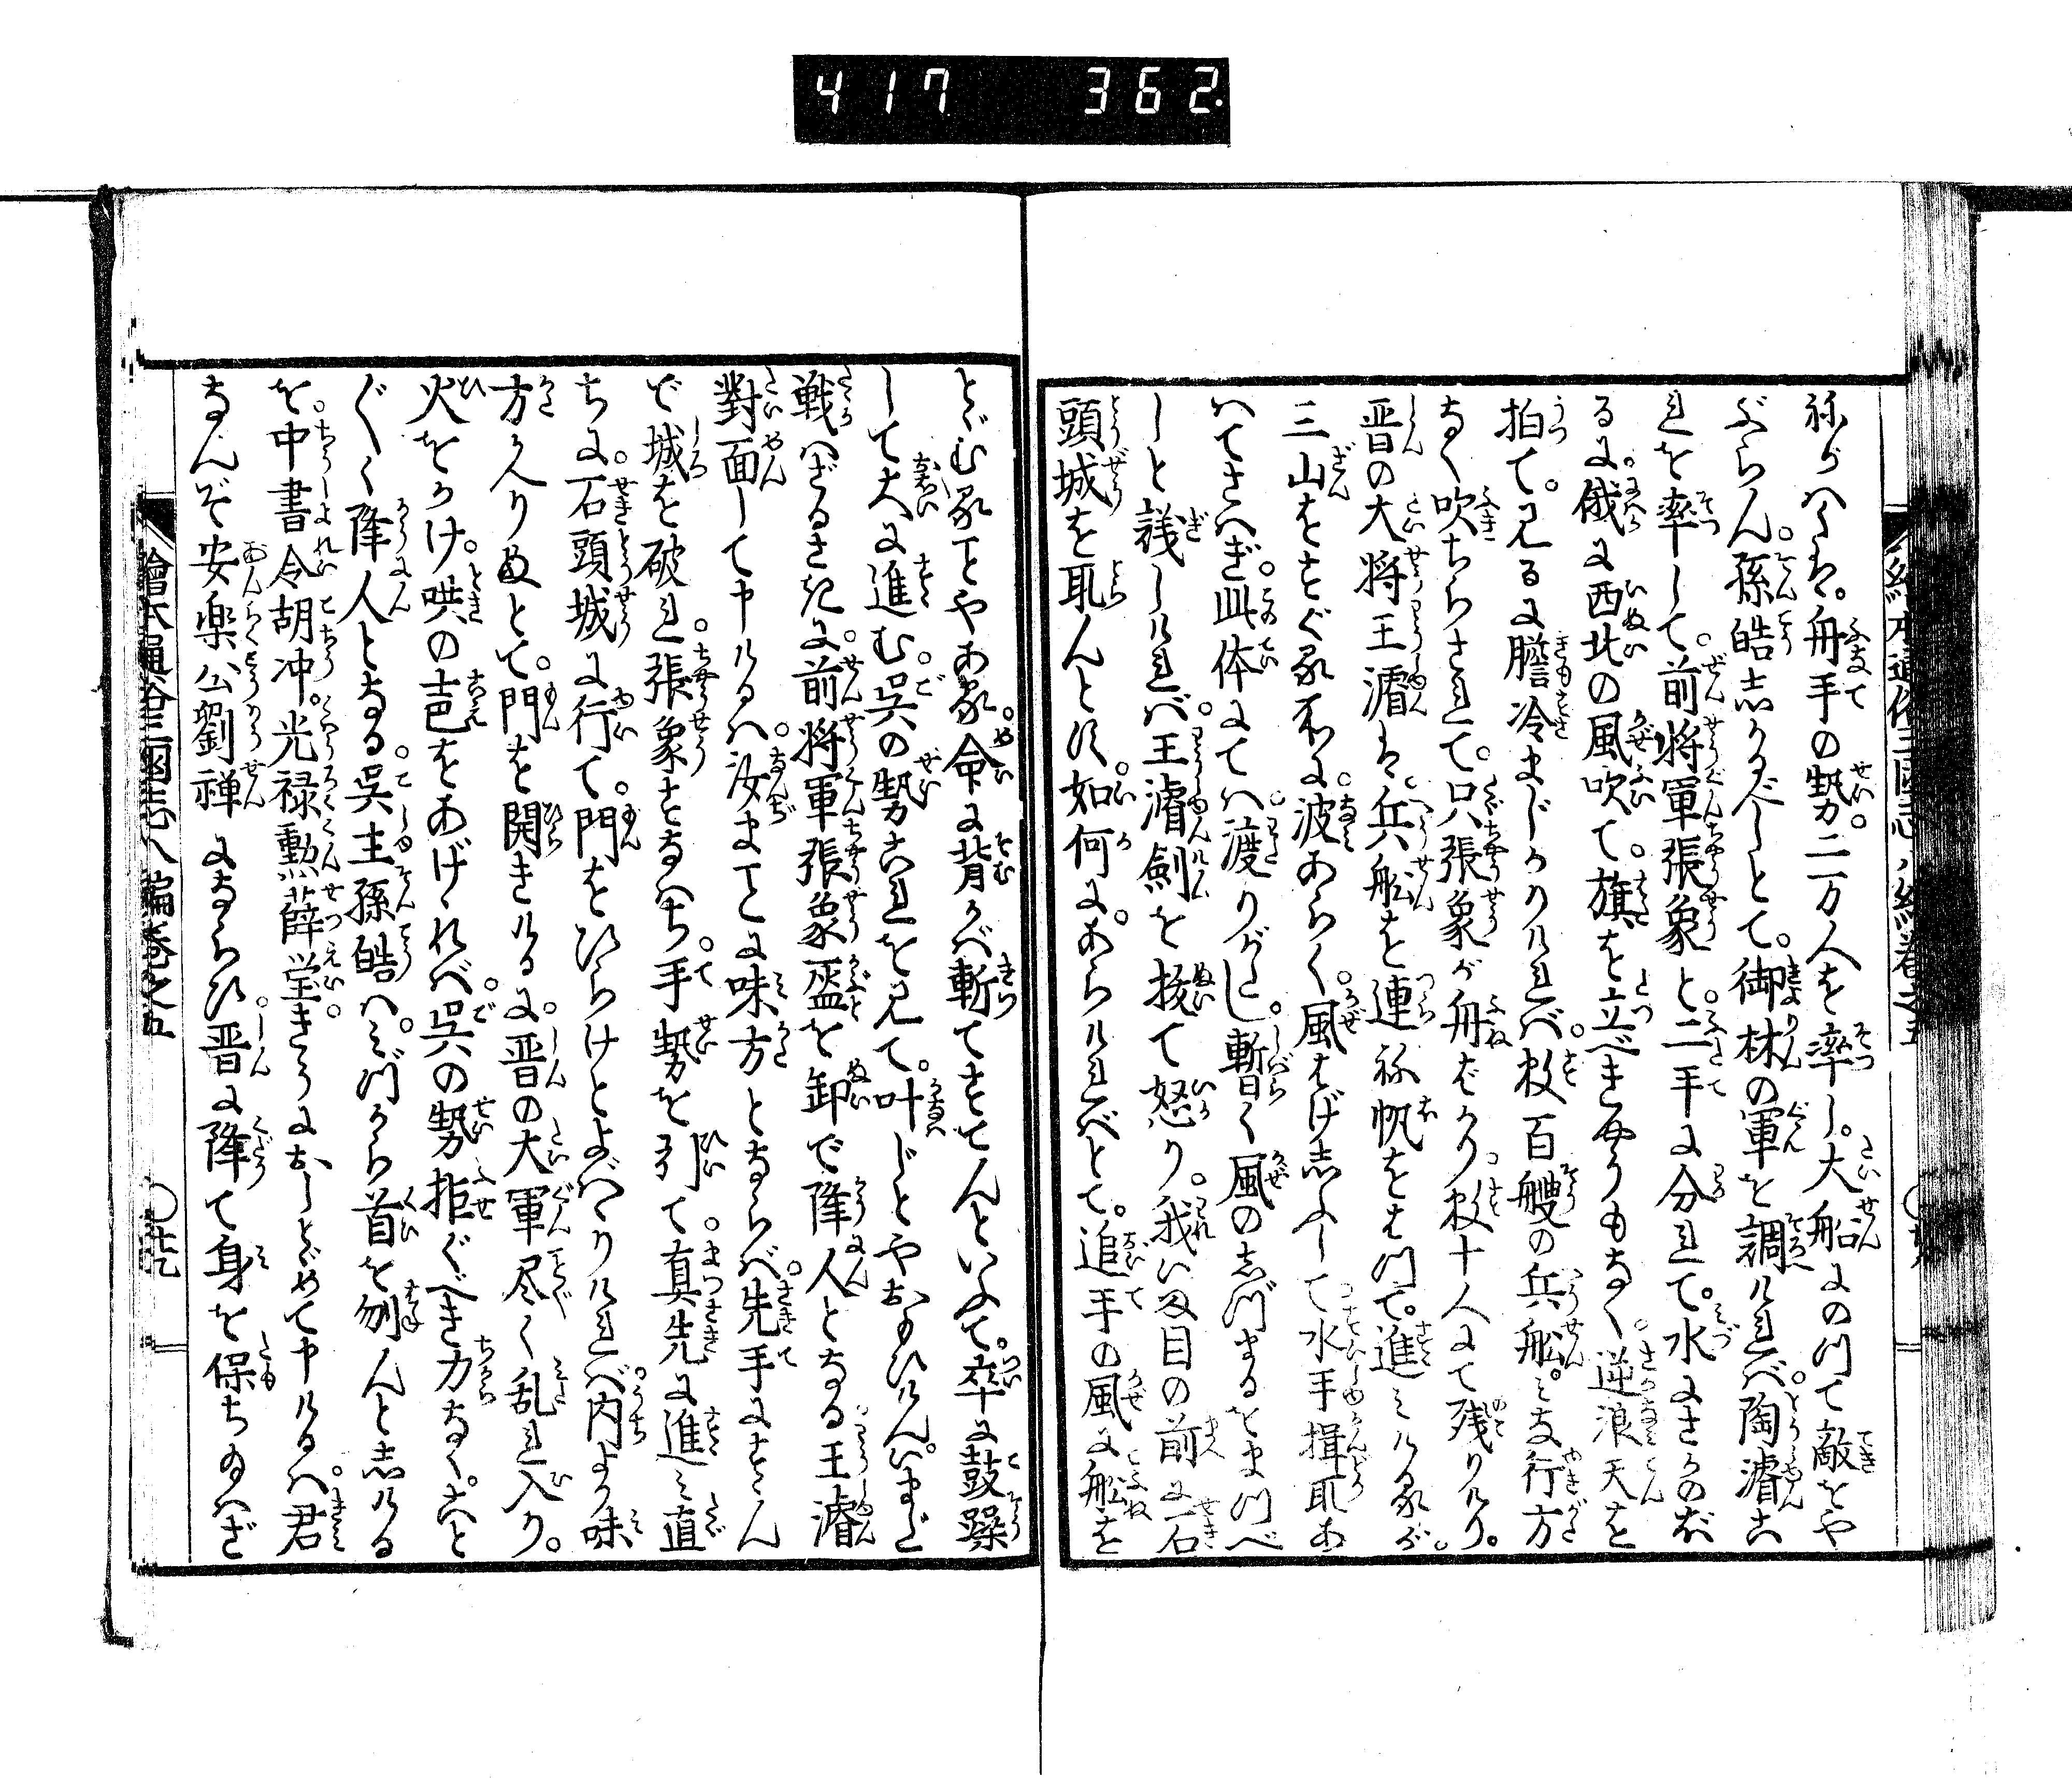 417 362
祢がハくは。舟手の勢二万人を率し。大船にのつて敵をや
ぶらん。孫皓志かるべしとて。御林の軍を調けれバ。陶濬こ
れを率して。前将軍張象と。二手に分れて。水にさかのぼ
るに。俄に西北の風吹て。旗を立べきやうもなく。逆浪天を
拍て。見るに膽冷まじかりけれバ。数百艘の兵舩。ミな行方
なく吹ちらされて。只張象が舟ばかり。数十人にて残りけり。
晋の大将王濬は。兵舩を連ね帆をはつて。進ミけるが。
三山をすぐる不に。波あらく。風はげしふして水手揖取あ
ハてさハぎ。此体にてハ渡りがたし。暫く風のしづまるをまつべ
しと議しけれバ。王濬劍を抜て怒り。我いま目の前に石
頭城を取んとす。如何にあらけれバとて。追手の風に舩を
とゞむることやある。命に背かバ斬てすてんといふて。卒に鼓譟
して大に進む。呉の勢これを見て。叶じとやおもひけん。いまだ
戦ハざるさきに。前将軍張象盔を卸で降人となる。王濬
對面して申けるハ。汝まことに味方とならバ。先手にすゝん
で城を破れ。張象すなハち。手勢を引て。真先に進ミ直
ちに。石頭城に行て。門をひらけとよばハりけれバ。内より味
方かへりぬとて。門を開きけるに。晋の大軍尽く乱れ入り。
火をかけ。哄の声をあげゝれバ。呉の勢拒ぐべき力なく。こと
ぐく降人となる。呉主孫皓ハ。ミづから首を刎んとしける
を。中書令胡冲。光禄勲薛瑩きうにおしとゞめて申けるハ。君
なんぞ安楽公劉禅にならひ。晋に降て身を保ち給ハざ
繪本通俗三國志八編巻之五